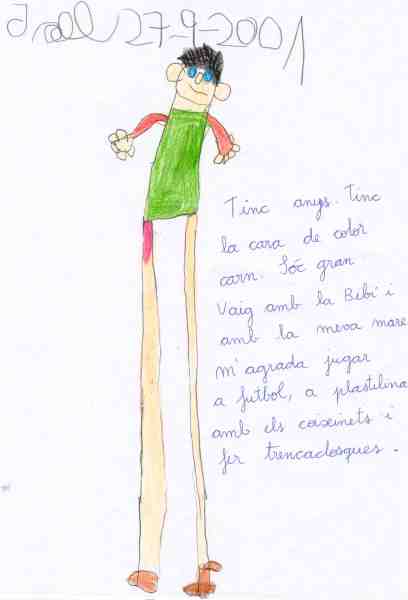 Joel 27-9-2001
Tinc anys. Tinc
la cara de color
carn. Sóc gran
Vaig amb la Bebi i
amb la meva mare
m'agrada jugar
a futbol, a plastilina
amb els coixinets i
fer trencaclosques.